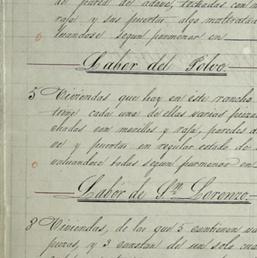 de pared de adave, techadas con m
raja y sus puertas algo maltratad
luandose segun pormenor en
Labor del Polvo.
5 Viviendas que hay en este rancho
tiene cada una de ellas varias piezas
chadas con morillos y raja, paredes de ado
ve y puertas en regular estado de
valuandose todas segun pormenor en
Labor de Sn. Lorenzo.
8 Viviendas, de las que 5 contienen va
piezas, y 3 constan de un solo cua